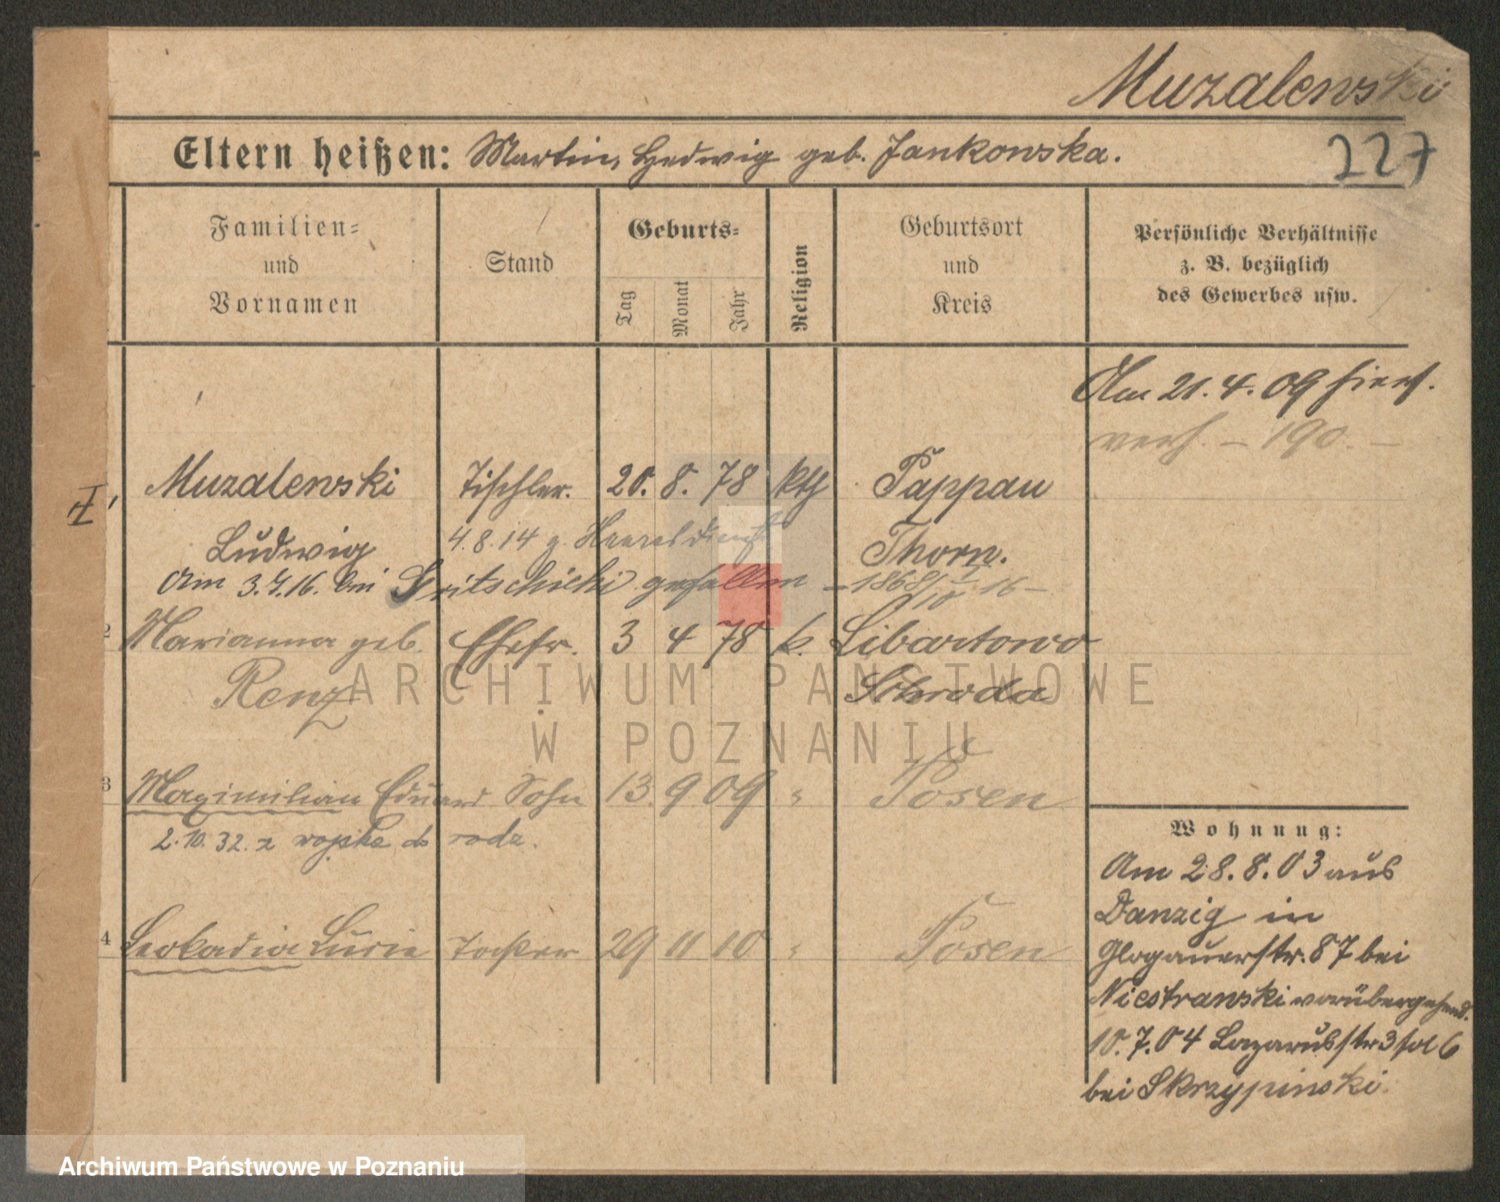 Muzalewski
227
Eltern heißen: Martin, Hedwig geb. Jankowska.
Familien=
und
Vornamen
Stand
Geburts=
Tag
Monat
Jahr
Religion
Geburtsort
und
Kreis
Persönliche Verhältnisse
z. B. bezüglich
des Gewerbes usw.
Am 21.4.09 hiers.
verh. – 190 –
I 1 Muzalewski Tischler. 20. 8. 78 kth Pappau
Ludwig 4.8.14 z. Heeresdienst Thorn.
Am 3.7.16. bei gefallen – 1868/10 I 16 –
2 Marianna geb. Ehefr. 3 4 78 k. Libartowo
Renz Schroda
3 Maximilian Eduard Sohn 13 9 09 " Posen
2.10.32. z wojska do rodz.
4 Leokadia Lucie Tochter 29 11 10 " Posen
Wohnung:
Am 28.8.03 aus
Danzig in
Glogauerstr. 87 bei
Niestrawski vorübergehend.
10.7.04 Lazarusstr 3 6
bei Skrzypinski.
ARCHIWUM PAŃSTWOWE
W POZNANIU
Archiwum Państwowe w Poznaniu